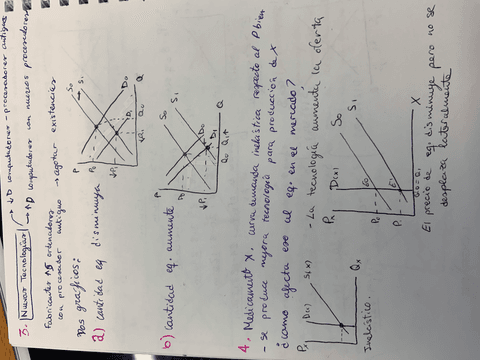 3. Nuevas Tecnologías
→ ↓D computadores - procesadores antiguos
→ ↑D computadores con nuevos procesadores
Fabricantes ordenadores
con procesador antiguo → agotar existencias
Dos gráficos:
a) cantidad eq disminuya
P
S0
S1
D0
D1
P0
↓P1
Q1
Q0
Q
b) Cantidad eq. aumente
P
S0
S1
D0
D1
P0
↓P1
Q0
Q1↑
Q
4. Medicamento X. curva demanda inelástica respecto al P bien
- se produce mejora tecnología para producción de X
¿Cómo afecta eso al eq. en el mercado?
- La tecnología aumenta la oferta
Px
D(x)
S(x)
Qx
Inelástica.
Px
D(x)
S0
S1
E0
E1
P0
P1
Q0=Q1
X
El precio de eq. disminuye pero no se
desplaza lateralmente